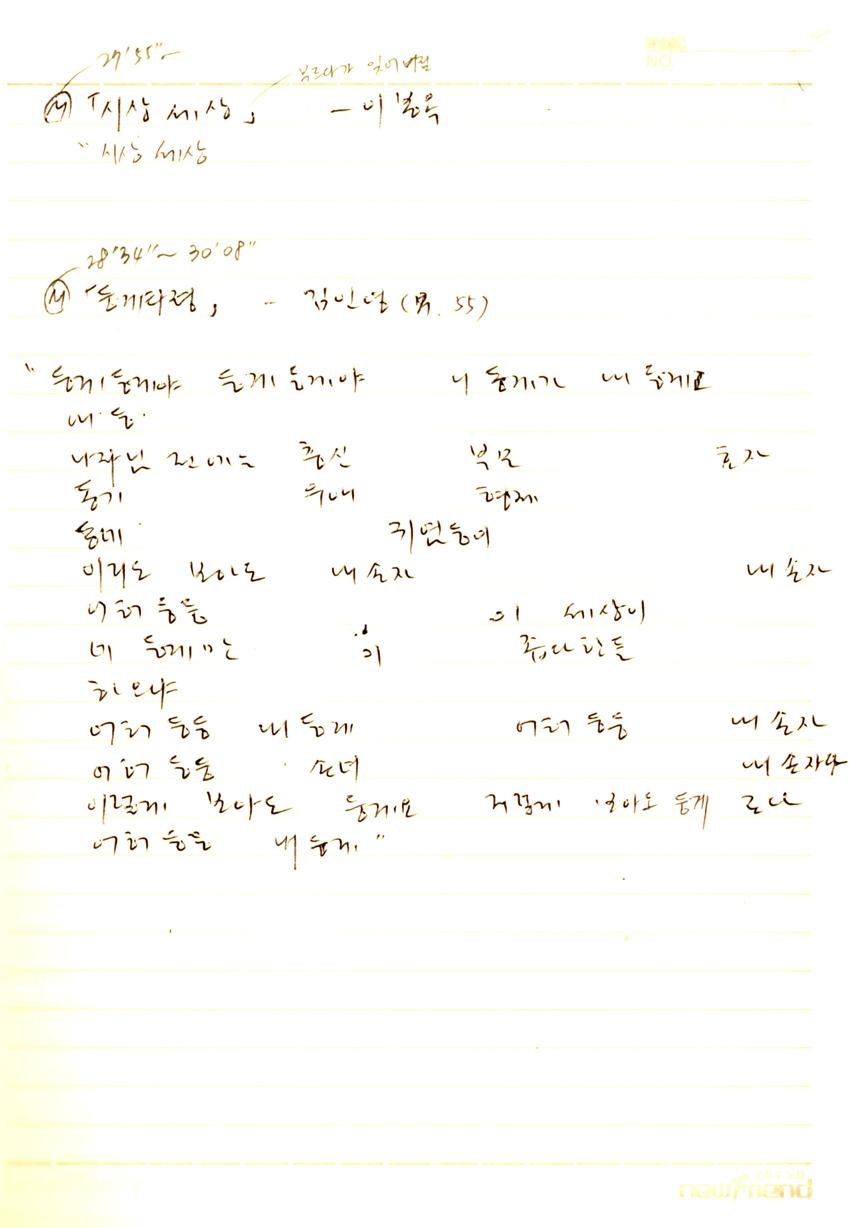 NO
27'55"~
부르다가 잊어버림
Ⓜ 「시상 세상」 - 이봉옥
"시상 세상
28'34"~ 30'08"
Ⓜ 「둥게타령」 - 김인영 (男. 55)
"둥게둥게야 둥게둥게야 니 둥게가 내 둥게고
내 둥
나라님 전에는 충신 부모 효자
동기 우애 형제
동네 귀연둥이
이리도 보아도 내 손자 내 손자
어허 둥둥 이 세상이
네 둥게만 이 좁다한들
하오냐
어허 둥둥 내 둥게 어허 둥둥 내 손자
어허 둥둥 손녀 내 손자야
이렇게 보아도 둥게요 저렇게 보아도 둥게 로다
어허 둥둥 내 둥게"
newfriend